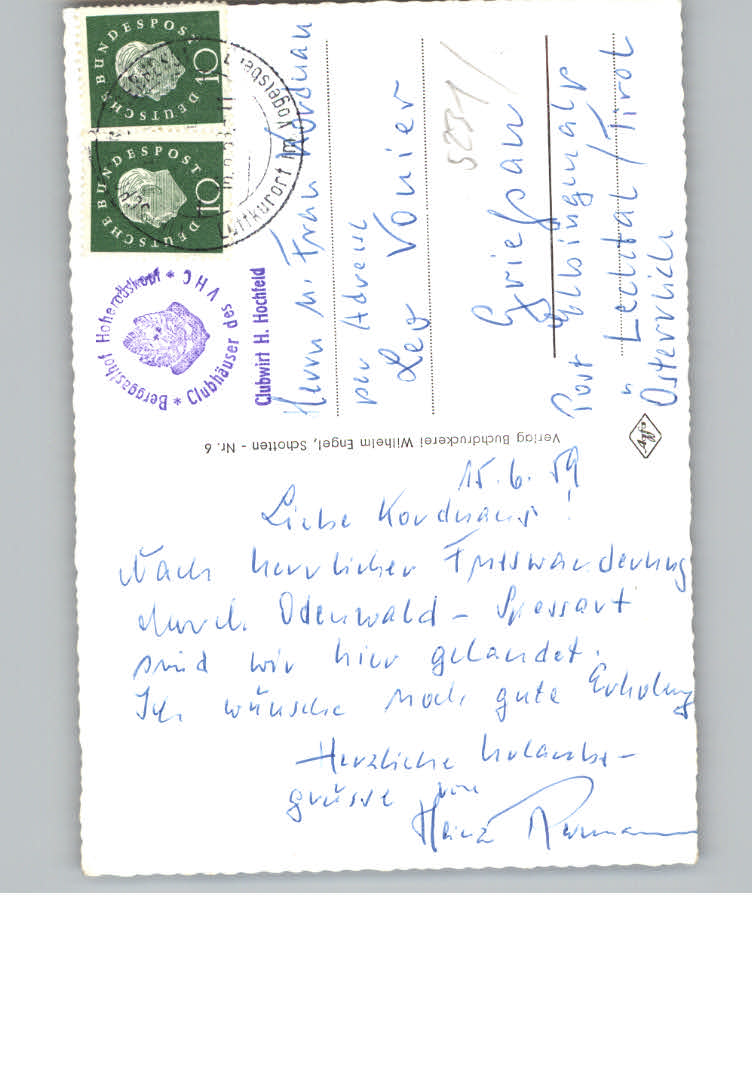 15.6.59
Liebe Kordnans!
Nach herrlicher Fusswanderung
durch Odenwald - Spessart
sind wir hier gelandet.
Ich wünsche noch gute Erholung
Herzliche Urlaubs-
grüsse von
Heinz
Herrn u. Frau Kordnan
per Adresse
Leo Vonier
5231/
Griesau
Post Elbigenalp
Lechtal / Tirol
Österreich
Verlag Buchdruckerei Wilhelm Engel, Schotten - Nr. 6
Agfa
DEUTSCHE BUNDESPOST
10
DEUTSCHE BUNDESPOST
10
Luftkurort im Vogelsberg
* Berggasthof Hoherodskopf *
Clubhäuser des VHC
Clubwirt H. Hochfeld